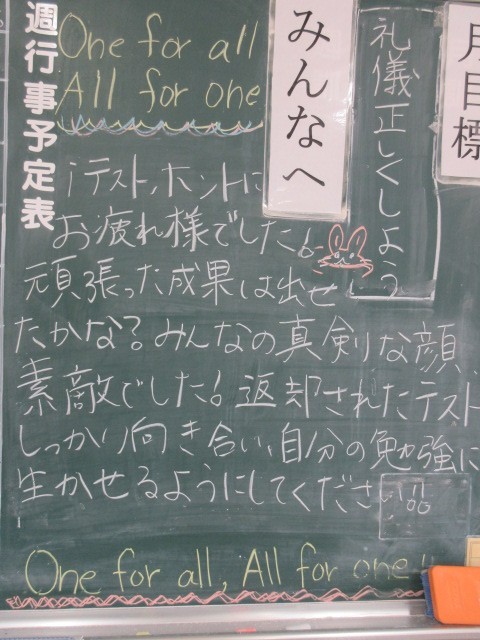 週行事予定表
One for all
All for one
みんなへ
礼儀正しくしよう
月目標
テスト、ホントに
お疲れ様でした!
頑張った成果は出せ
たかな?みんなの真剣な顔、
素敵でした!返却されたテスト
しっかり向き合い、自分の勉強に
生かせるようにしてください!!
One for all, All for one!!